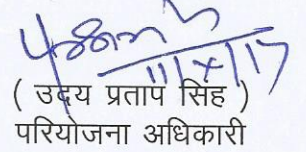 11/X/17
( उदय प्रताप सिंह )
परियोजना अधिकारी